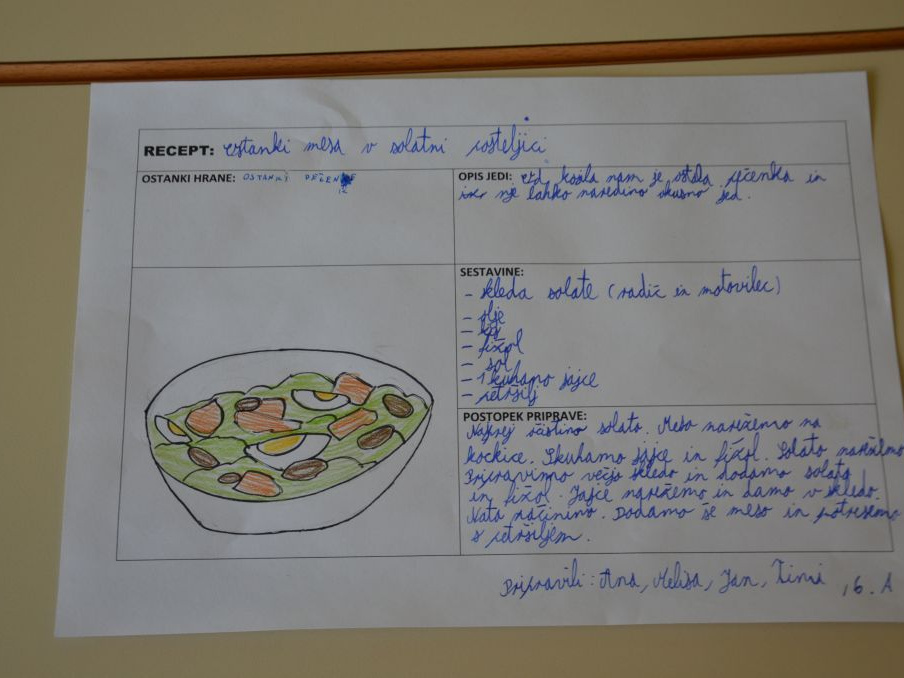 RECEPT: ostanki mesa v solatni posteljici
OSTANKI HRANE: OSTANKI PEČENKE
OPIS JEDI: Od kosila nam je ostala pečenka in
iz nje lahko naredimo okusno jed.
SESTAVINE:
- skleda solate (radič in motovilec)
- olje
- kis
- fižol
- sol
- 1 kuhano jajce
- peteršilj
POSTOPEK PRIPRAVE:
Najprej očistimo solato. Meso narežemo na
kockice. Skuhamo jajce in fižol. Solato narežemo
Pripravimo večjo skledo in dodamo solato
in fižol. Jajce narežemo in damo v skledo.
Nato začinimo. Dodamo še meso in potresemo
s petršiljem.
Pripravili: Ana, Melisa, Jan, 6. A